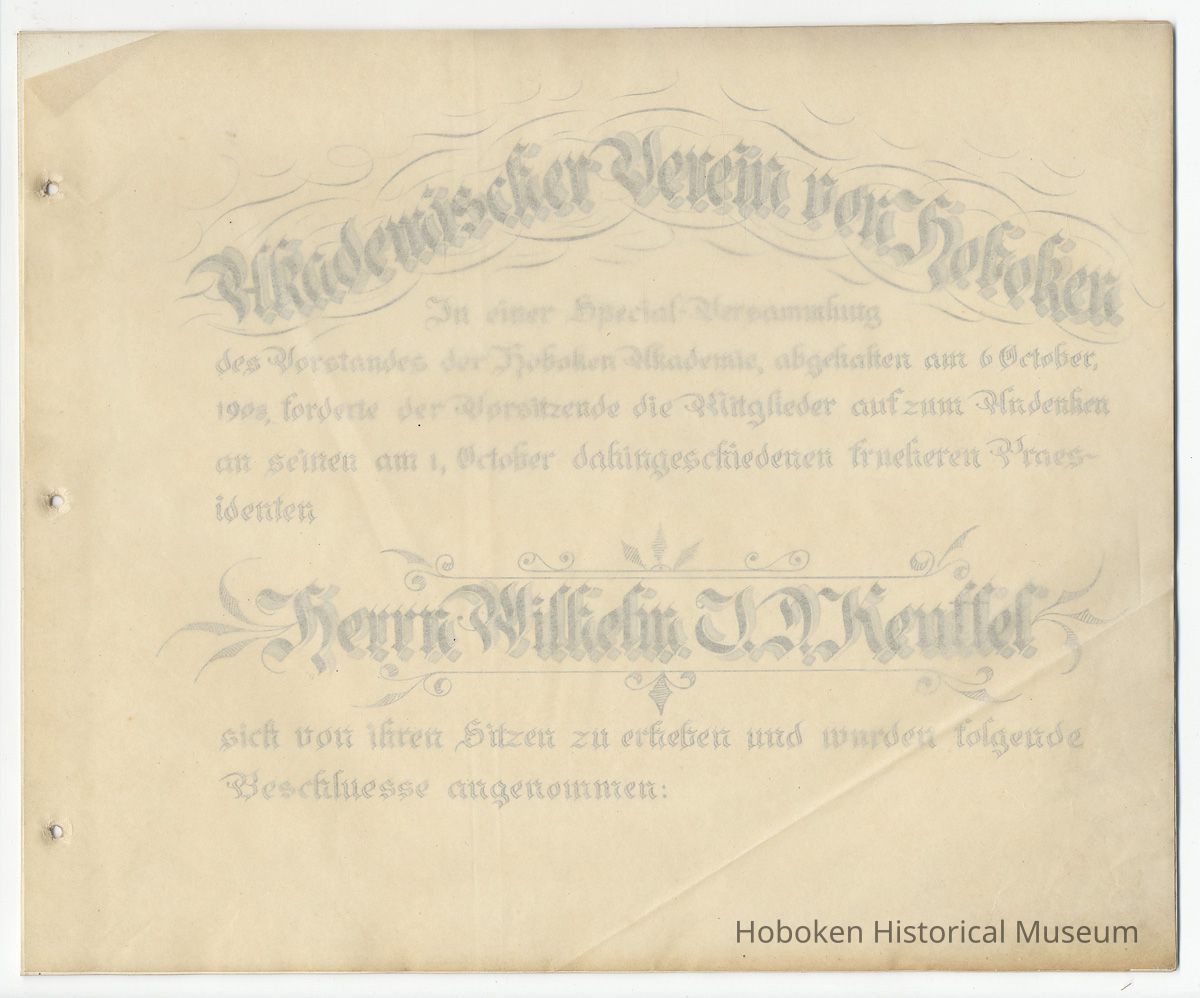 Akademischer Verein von Hoboken
In einer Special-Versammlung
des Vorstandes der Hoboken Akademie, abgehalten am 6 October,
1908, forderte der Vorsitzende die Mitglieder auf zum Andenken
an seinen am 1, October dahingeschiedenen frueheren Praes-
identen
Herrn Wilhelm. J. D. Keuffel.
sich von ihren Sitzen zu erheben und wurden folgende
Beschluesse angenommen:
Hoboken Historical Museum